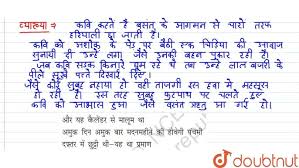 व्याख्या ⇒ कवि कहते हैं बसंत के आगमन से चारो तरफ
हरियाली छा जाती है।
कवि को अशोक के पेड़ पर बैठी एक चिड़िया की आवाज
सुनायी दी उन्हें लगा जैसे उनकी बहन पुकार रही है।
जब कवि सड़क किनारे घूम रहे थे तब उन्हें लाल बजरी के
पीले सूखे पत्ते दिखाई दिए।
जैसे कोई सुबह नहाया हो वही ताजगी इस हवा में महसूस
हो रही है। इस तरह सुबह फुटपाथ पर चलते हुए
कवि को आभास हुआ जैसे वसंत ऋतु आ गई हो।
और यह कैलेंडर से मालूम था
अमुक दिन अमुक बार मदनमहीने की होवेगी पंचमी
दफ़्तर में छुट्टी थी-यह था प्रमाण
doubtnut